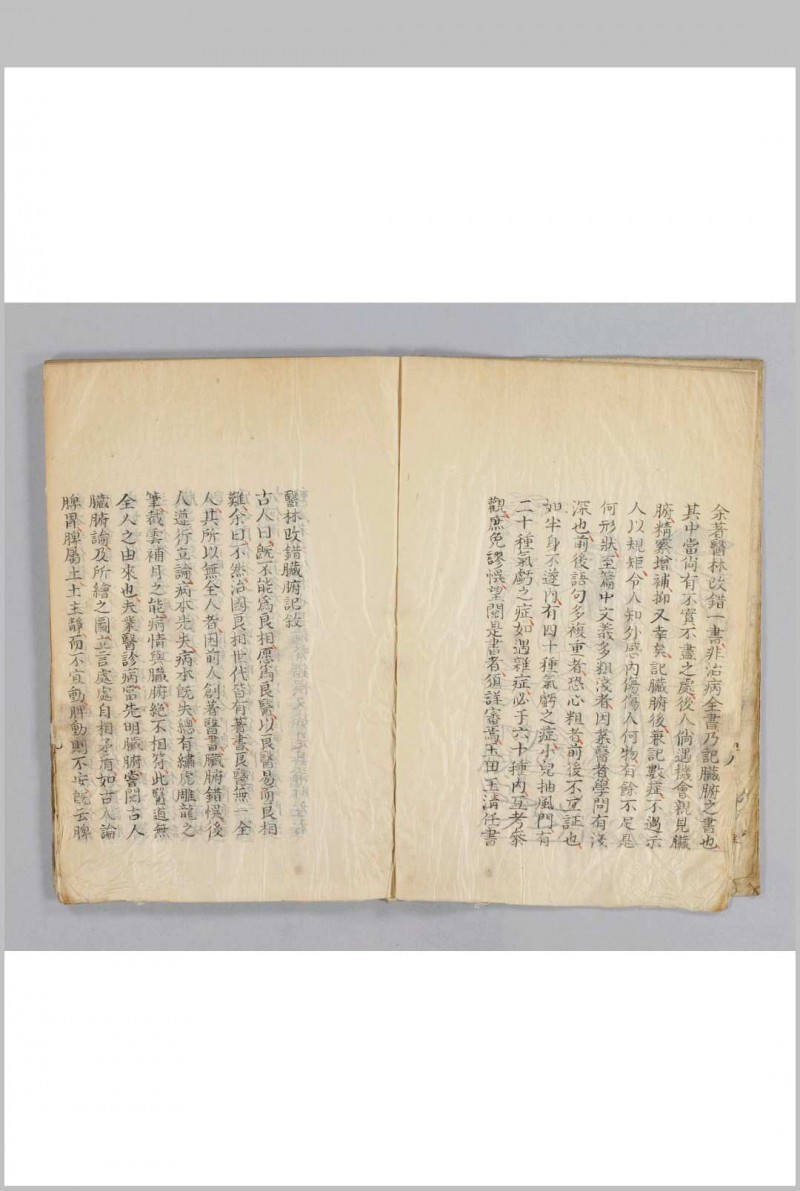 余著醫林改錯一書非治病全書乃記臟腑之書也
其中當尚有不實不盡之處後人倘遇機會親見臟
腑精察增補抑又幸矣記臟腑後兼記數症不過示
人以規矩令人知外感內傷傷人何物有餘不足是
何形狀至篇中文義多粗淺者因業醫者學問有淺
深也前後語句多複重者恐心粗者前後不互証也
如半身不遂內有四十種氣虧之症小兒抽風門有
二十種氣虧之症如遇雜症必于六十種內互考參
觀庶免謬悞望閱是書者須詳審焉玉田王清任書
醫林改錯臟腑記敘
古人曰既不能爲良相愿爲良醫以良醫易而良相
難余曰不然治國良相世代皆有著書良醫無一全
人其所以無全人者因前人創著醫書臟腑錯悞後
人遵行立論病本先失病本既失總有繡虎雕龍之
筆裁雲補月之能病情與臟腑絕不相符此醫道無
全人之由來也夫業醫診病當先明臟腑嘗閱古人
臟腑論及所繪之圖立言處處自相矛盾如古人論
脾胃脾屬土土主靜而不宜動脾動則不安既云脾